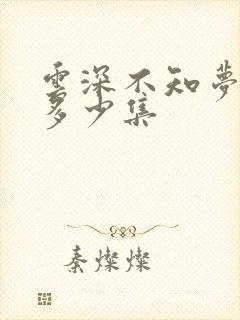 雲深不知夢
多少集
秦燦燦